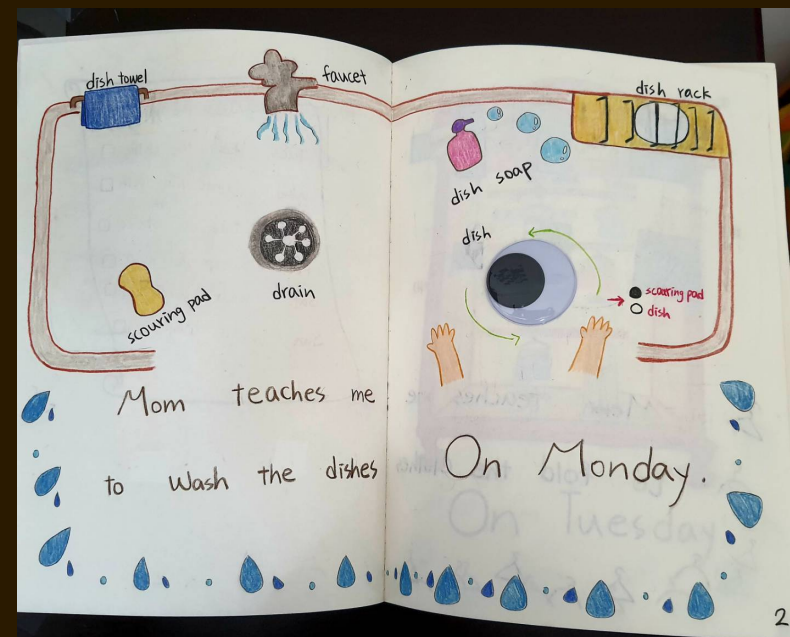 dish towel
faucet
dish rack
dish soap
dish
scouring pad
drain
scouring pad
dish
Mom teaches me
to wash the dishes
On Monday.
On Tuesday
2